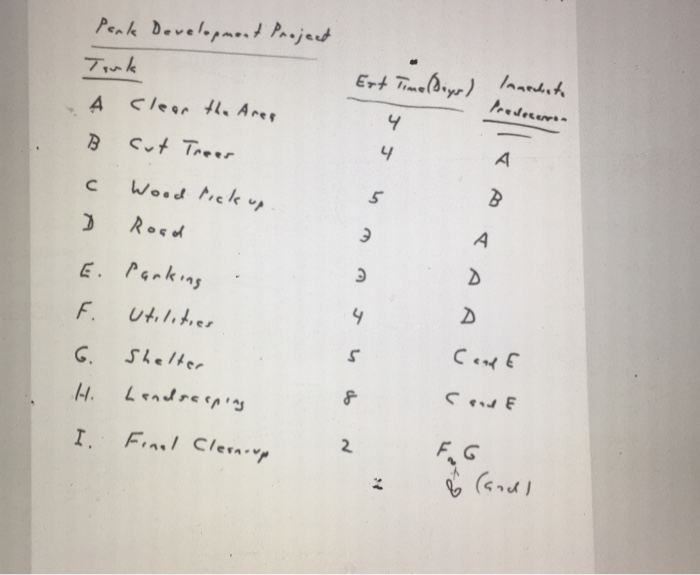 Park Development Project
Task Est Time (Days) Immediate Predecessor
A Clear the Area 4
B Cut Trees 4 A
C Wood Pick up 5 B
D Road 3 A
E. Parking 3 D
F. Utilities 4 D
G. Shelter 5 C and E
H. Landscaping 8 C and E
I. Final Clean-up 2 F, G
(and)